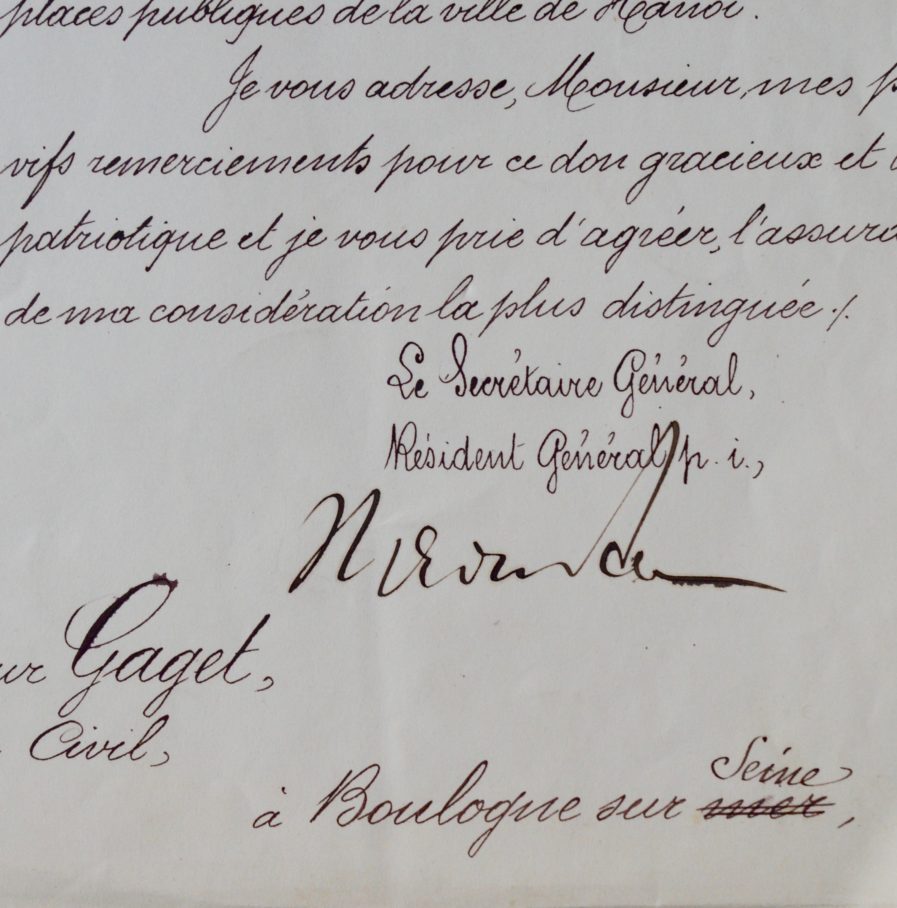 places publiques de la ville de Hanoi.
Je vous adresse, Monsieur, mes p
vifs remerciements pour ce don gracieux et
patriotique et je vous prie d'agréer, l'assura
de ma considération la plus distinguée ./.
Le Secrétaire Général,
Résident Général p. i.,
ur Gaget,
Civil,
Seine
à Boulogne sur mer,